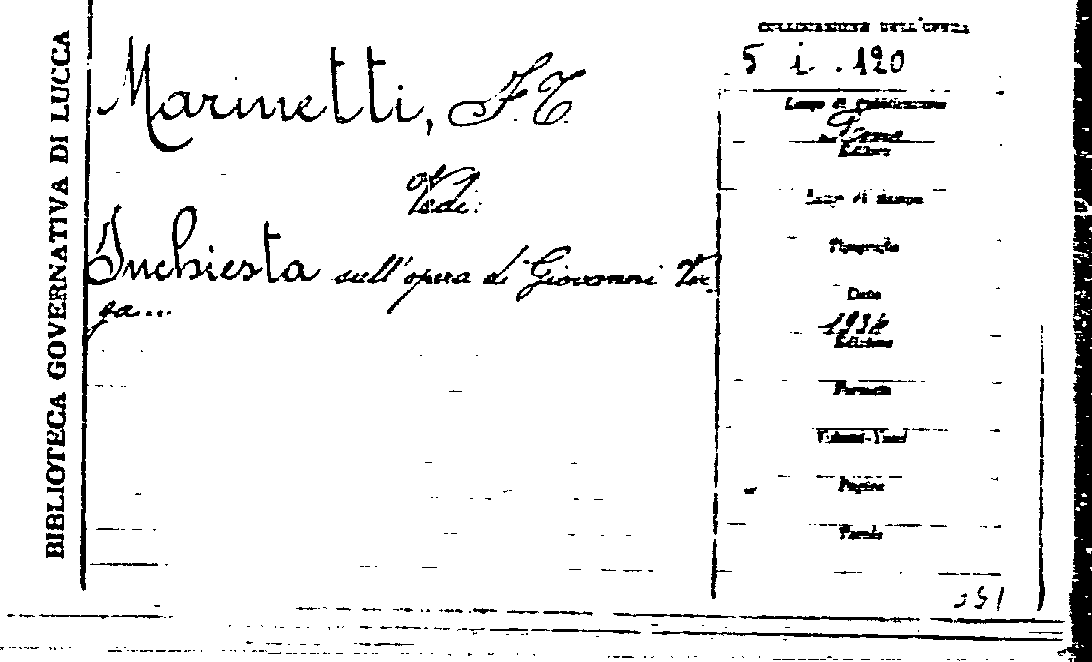 BIBLIOTECA GOVERNATIVA DI LUCCA
Marinetti, F.T.
Vedi:
Inchiesta sull'opera di Giovanni Ver-
ga...
COLLOCAZIONE DELL'OPERA
5 i . 120
Luogo di Pubblicazione
Editore
Luogo di stampa
Tipografia
Data
Edizione
Formato
Volumi-Tomi
Pagine
Tavole